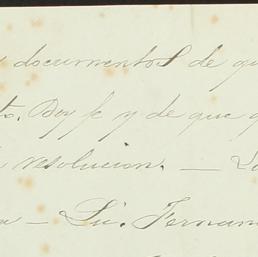 documentos de qu
to. Doy fe y de que q
resolucion. — Lu
a — Lic. Fernan